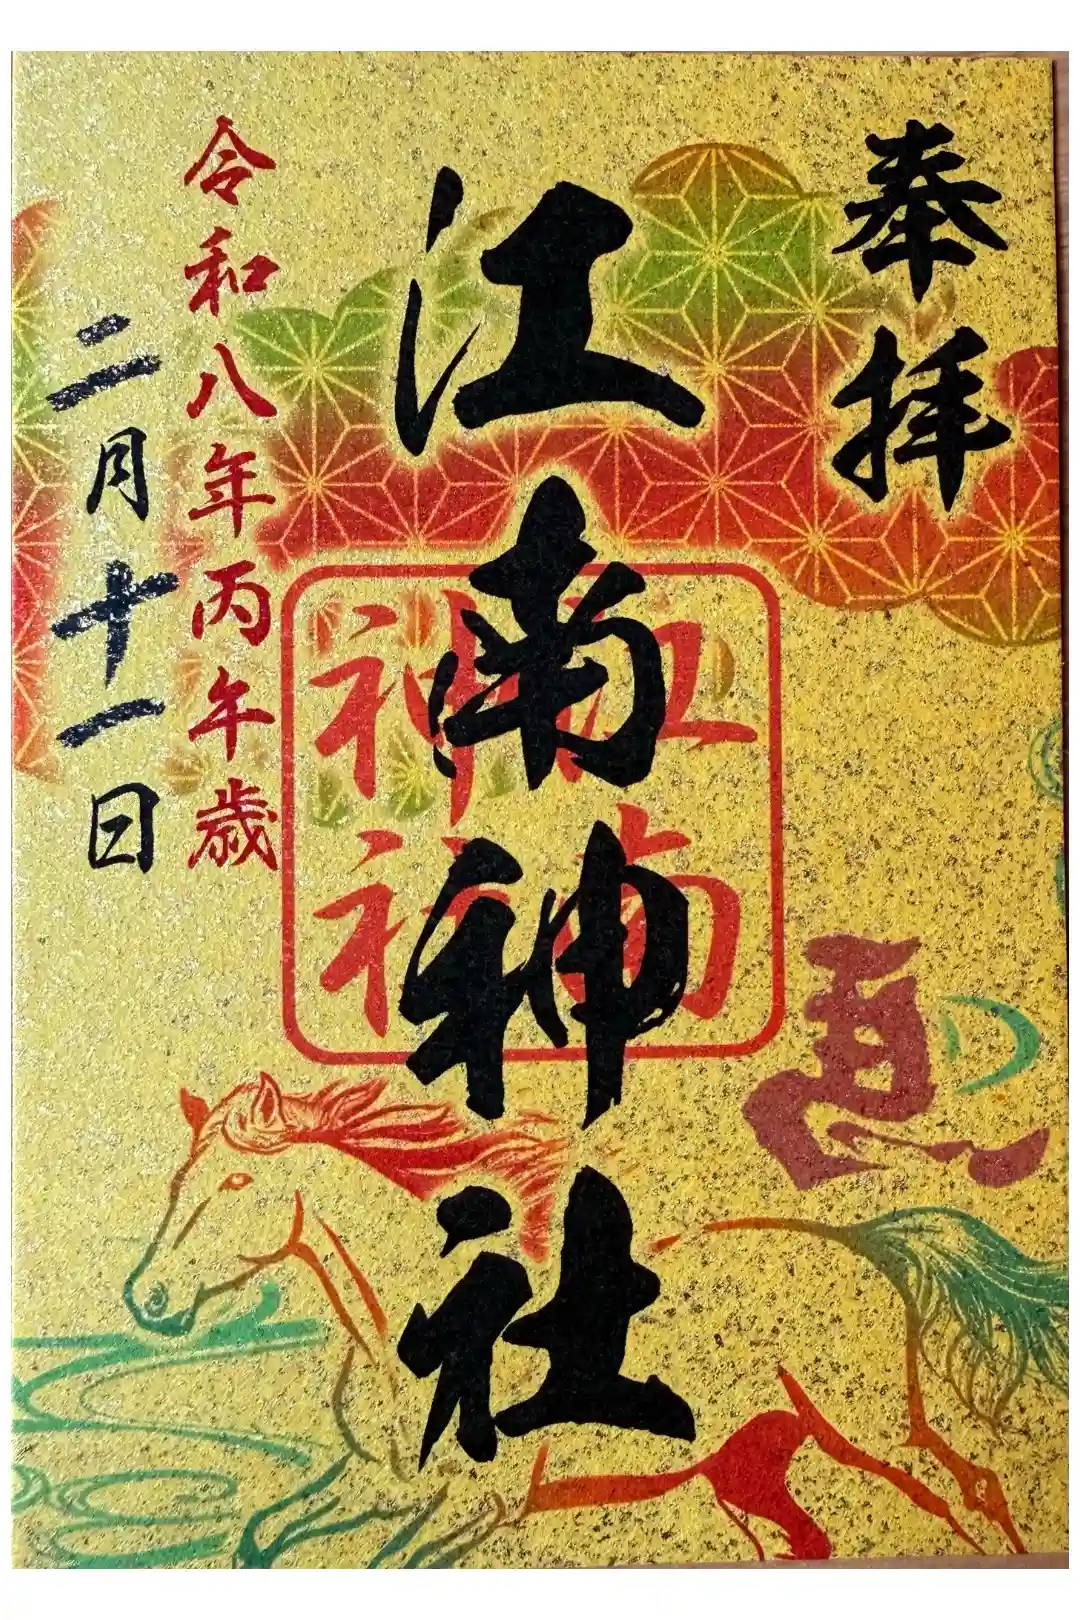 奉拝
江南神社
江南
神社
馬
令和八年丙午歳
二月十一日